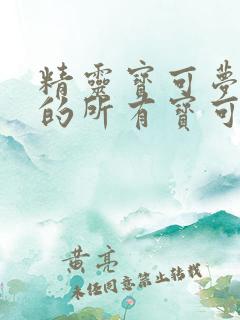 精靈寶可夢
的所有寶可
黃亮
未经同意禁止转载